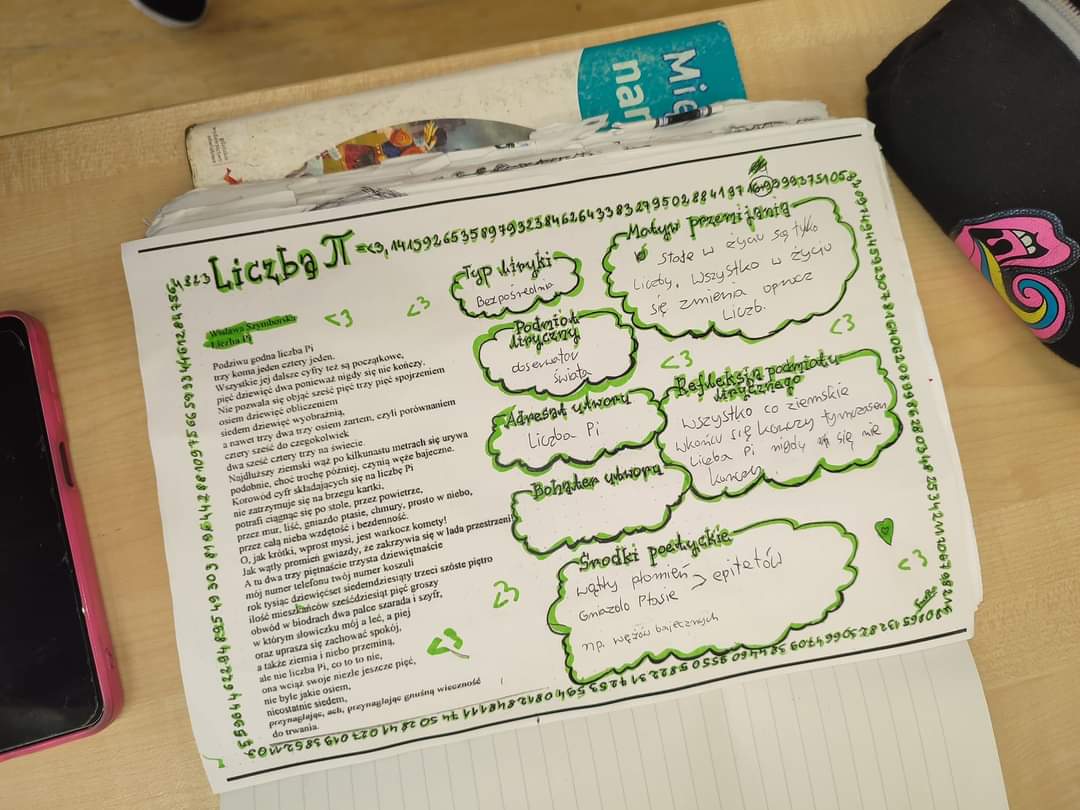 Mię
nar
Liczba π =<3,14159265358979323846264338327950288419716939937510582
Wisława Szymborska
Liczba Pi
Podziwu godna liczba Pi
trzy koma jeden cztery jeden.
Wszystkie jej dalsze cyfry też są początkowe,
pięć dziewięć dwa ponieważ nigdy się nie kończy.
Nie pozwala się objąć sześć pięć trzy pięć spojrzeniem
osiem dziewięć obliczeniem
siedem dziewięć wyobraźnią,
a nawet trzy dwa trzy osiem żartem, czyli porównaniem
cztery sześć do czegokolwiek
dwa sześć cztery trzy na świecie.
Najdłuższy ziemski wąż po kilkunastu metrach się urywa
podobnie, choć trochę później, czynią węże bajeczne.
Korowód cyfr składających się na liczbę Pi
nie zatrzymuje się na brzegu kartki,
potrafi ciągnąć się po stole, przez powietrze,
przez mur, liść, gniazdo ptasie, chmury, prosto w niebo,
przez całą nieba wzdętość i bezdenność.
O, jak krótki, wprost mysi, jest warkocz komety!
Jak wątły promień gwiazdy, że zakrzywia się w lada przestrzeni!
A tu dwa trzy piętnaście trzysta dziewiętnaście
mój numer telefonu twój numer koszuli
rok tysiąc dziewięćset siedemdziesiąty trzeci szóste piętro
ilość mieszkańców sześćdziesiąt pięć groszy
obwód w biodrach dwa palce szarada i szyfr,
w którym słowiczku mój a leć, a piej
oraz uprasza się zachować spokój,
a także ziemia i niebo przeminą,
ale nie liczba Pi, co to to nie,
ona wciąż swoje niezłe jeszcze pięć,
nie byle jakie osiem,
nieostatnie siedem,
przynaglając, ach, przynaglając gnuśną wieczność
do trwania.
<3
<3
Typ liryki
Bezpośrednia
Podmiot
liryczny
obserwator
świata
Adresat utworu
Liczba Pi
Bohater utworu
Motyw przemijania
Stałe w życiu są tylko
liczby. Wszystko w życiu
się zmienia oprócz
liczb.
<3
<3
Refleksja podmiotu
lirycznego
Wszystko co ziemskie
wkońcu się kończy tymczasem
Liczba Pi nigdy się nie
kończy.
Środki poetyckie
wątły płomień > epitetów
Gniazdo Ptasie
np. wężów bajecznych
<3
<3
<3